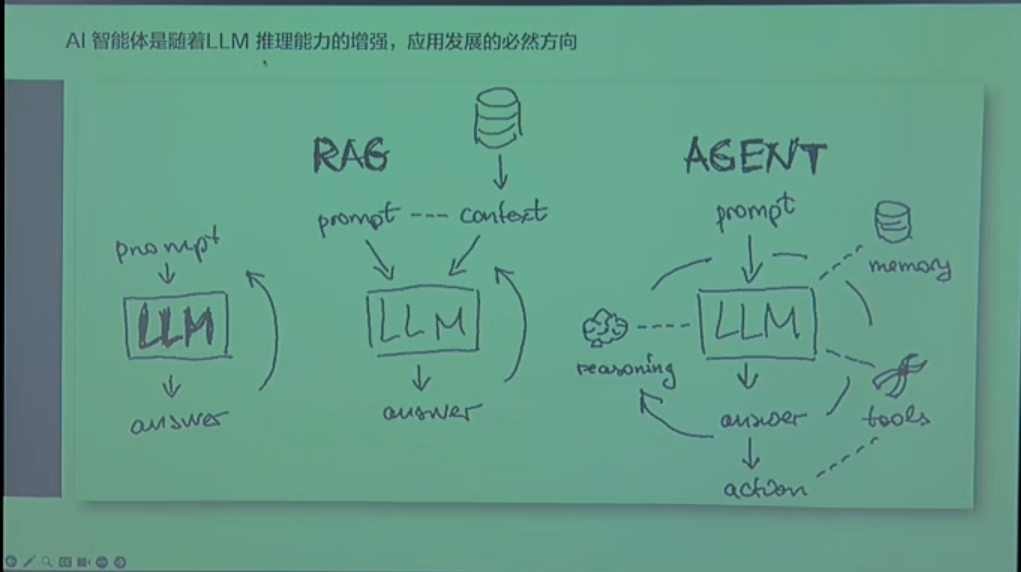 AI 智能体是随着LLM 推理能力的增强，应用发展的必然方向
prompt
LLM
answer
RAG
prompt --- context
LLM
answer
AGENT
prompt
memory
LLM
reasoning
tools
answer
action